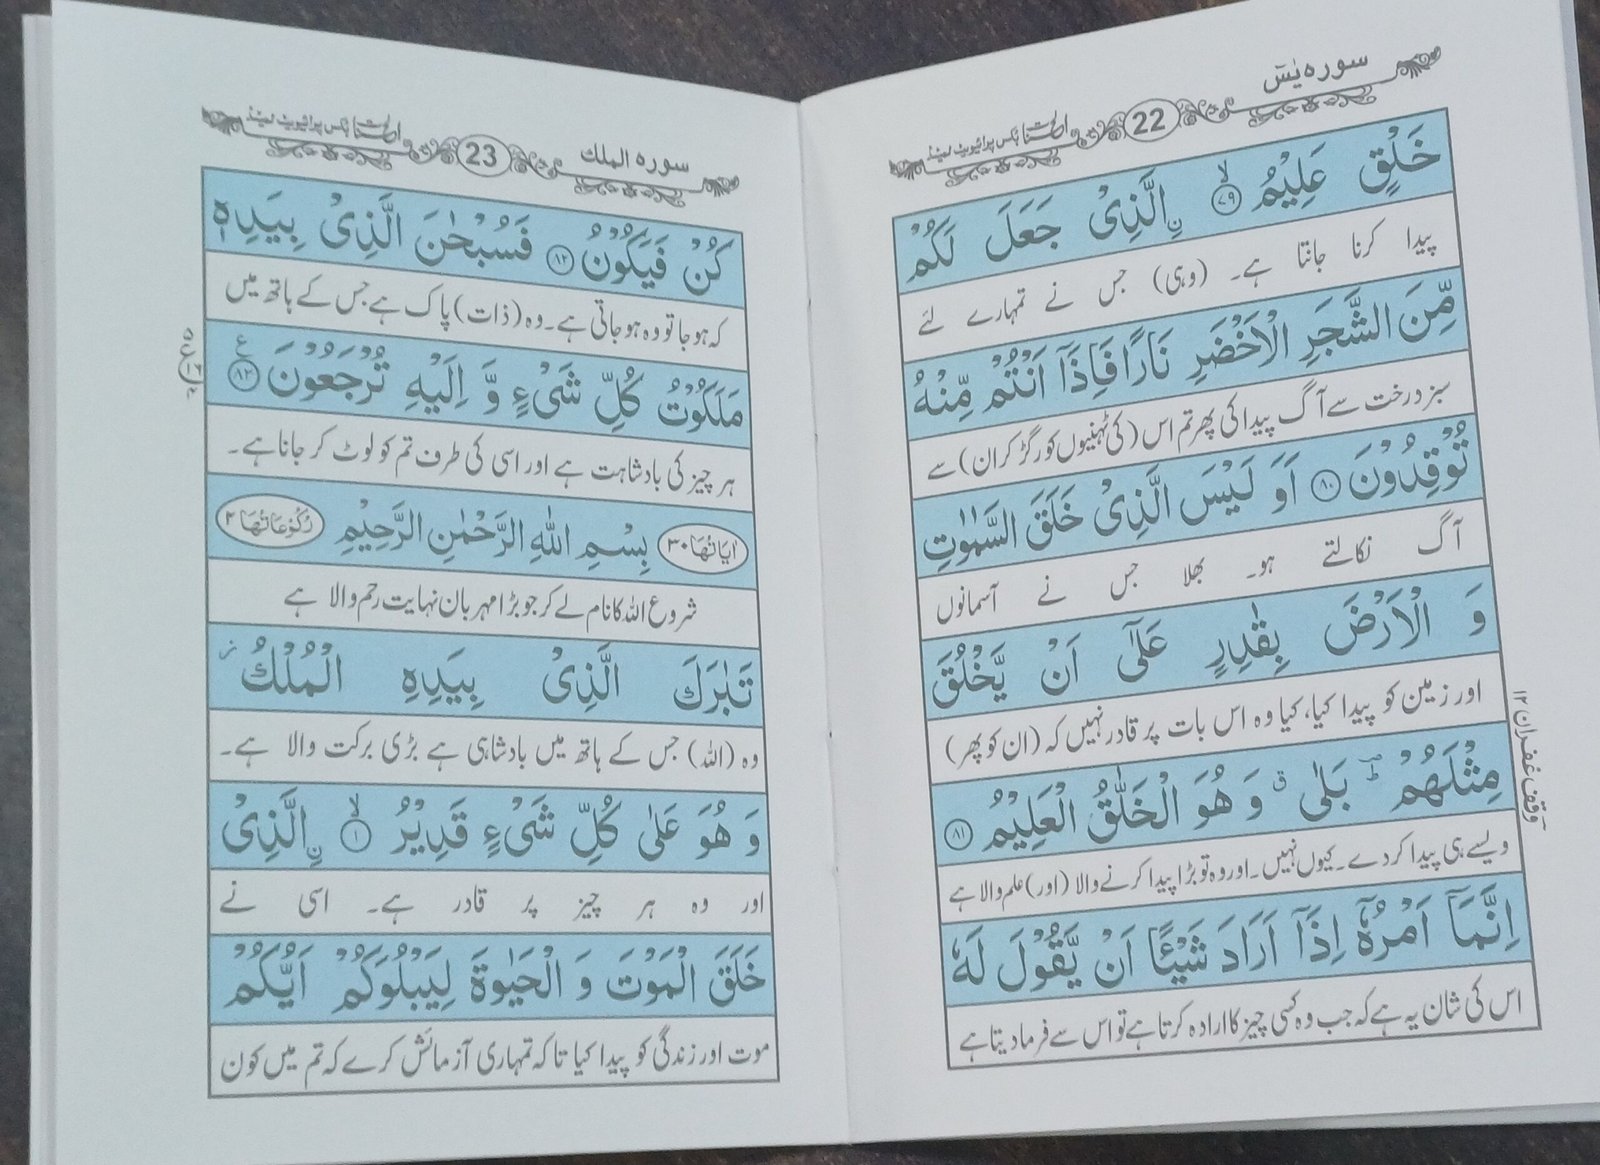 سورہ یٰسٓ
22
خَلْقٍ عَلِيْمُ ۙ﴿۷۹﴾ نِ الَّذِىْ جَعَلَ لَكُمْ
پیدا کرنا جانتا ہے۔ (وہی) جس نے تمہارے لئے
مِّنَ الشَّجَرِ الْاَخْضَرِ نَارًا فَاِذَاۤ اَنْتُمْ مِّنْهُ
سبز درخت سے آگ پیدا کی پھر تم اس (کی ٹہنیوں کو رگڑ کر ان) سے
تُوْقِدُوْنَ ﴿۸۰﴾ اَوَ لَيْسَ الَّذِىْ خَلَقَ السَّمٰوٰتِ
آگ نکالتے ہو۔ بھلا جس نے آسمانوں
وَ الْاَرْضَ بِقٰدِرٍ عَلٰٓى اَنْ يَّخْلُقَ
اور زمین کو پیدا کیا، کیا وہ اس بات پر قادر نہیں کہ (ان کو پھر)
مِثْلَهُمْ ؕ بَلٰى ۗ وَ هُوَ الْخَلّٰقُ الْعَلِيْمُ ﴿۸۱﴾
ویسے ہی پیدا کر دے۔ کیوں نہیں۔ اور وہ تو بڑا پیدا کرنے والا (اور) علم والا ہے
اِنَّمَاۤ اَمْرُهٗۤ اِذَاۤ اَرَادَ شَيْـًٔا اَنْ يَّقُوْلَ لَهٗ
اس کی شان یہ ہے کہ جب وہ کسی چیز کا ارادہ کرتا ہے تو اس سے فرما دیتا ہے
وقف غفران ۱۲
سورہ الملك
23
كُنْ فَيَكُوْنُ ﴿۸۲﴾ فَسُبْحٰنَ الَّذِىْ بِيَدِهٖ
کہ ہو جا تو وہ ہو جاتی ہے۔ وہ (ذات) پاک ہے جس کے ہاتھ میں
مَلَكُوْتُ كُلِّ شَىْءٍ وَّ اِلَيْهِ تُرْجَعُوْنَ ﴿۸۳﴾ ع
ہر چیز کی بادشاہت ہے اور اسی کی طرف تم کو لوٹ کر جانا ہے۔
اٰيَاتُهَا ۳۰ بِسْمِ اللّٰهِ الرَّحْمٰنِ الرَّحِيْمِ رُكُوْعَاتُهَا ۲
شروع اللہ کا نام لے کر جو بڑا مہربان نہایت رحم والا ہے
تَبٰرَكَ الَّذِىْ بِيَدِهِ الْمُلْكُ ؗ
وہ (اللہ) جس کے ہاتھ میں بادشاہی ہے بڑی برکت والا ہے۔
وَ هُوَ عَلٰى كُلِّ شَىْءٍ قَدِيْرُ ۙ﴿۱﴾ نِ الَّذِىْ
اور وہ ہر چیز پر قادر ہے۔ اسی نے
خَلَقَ الْمَوْتَ وَ الْحَيٰوةَ لِيَبْلُوَكُمْ اَيُّكُمْ
موت اور زندگی کو پیدا کیا تا کہ تمہاری آزمائش کرے کہ تم میں کون